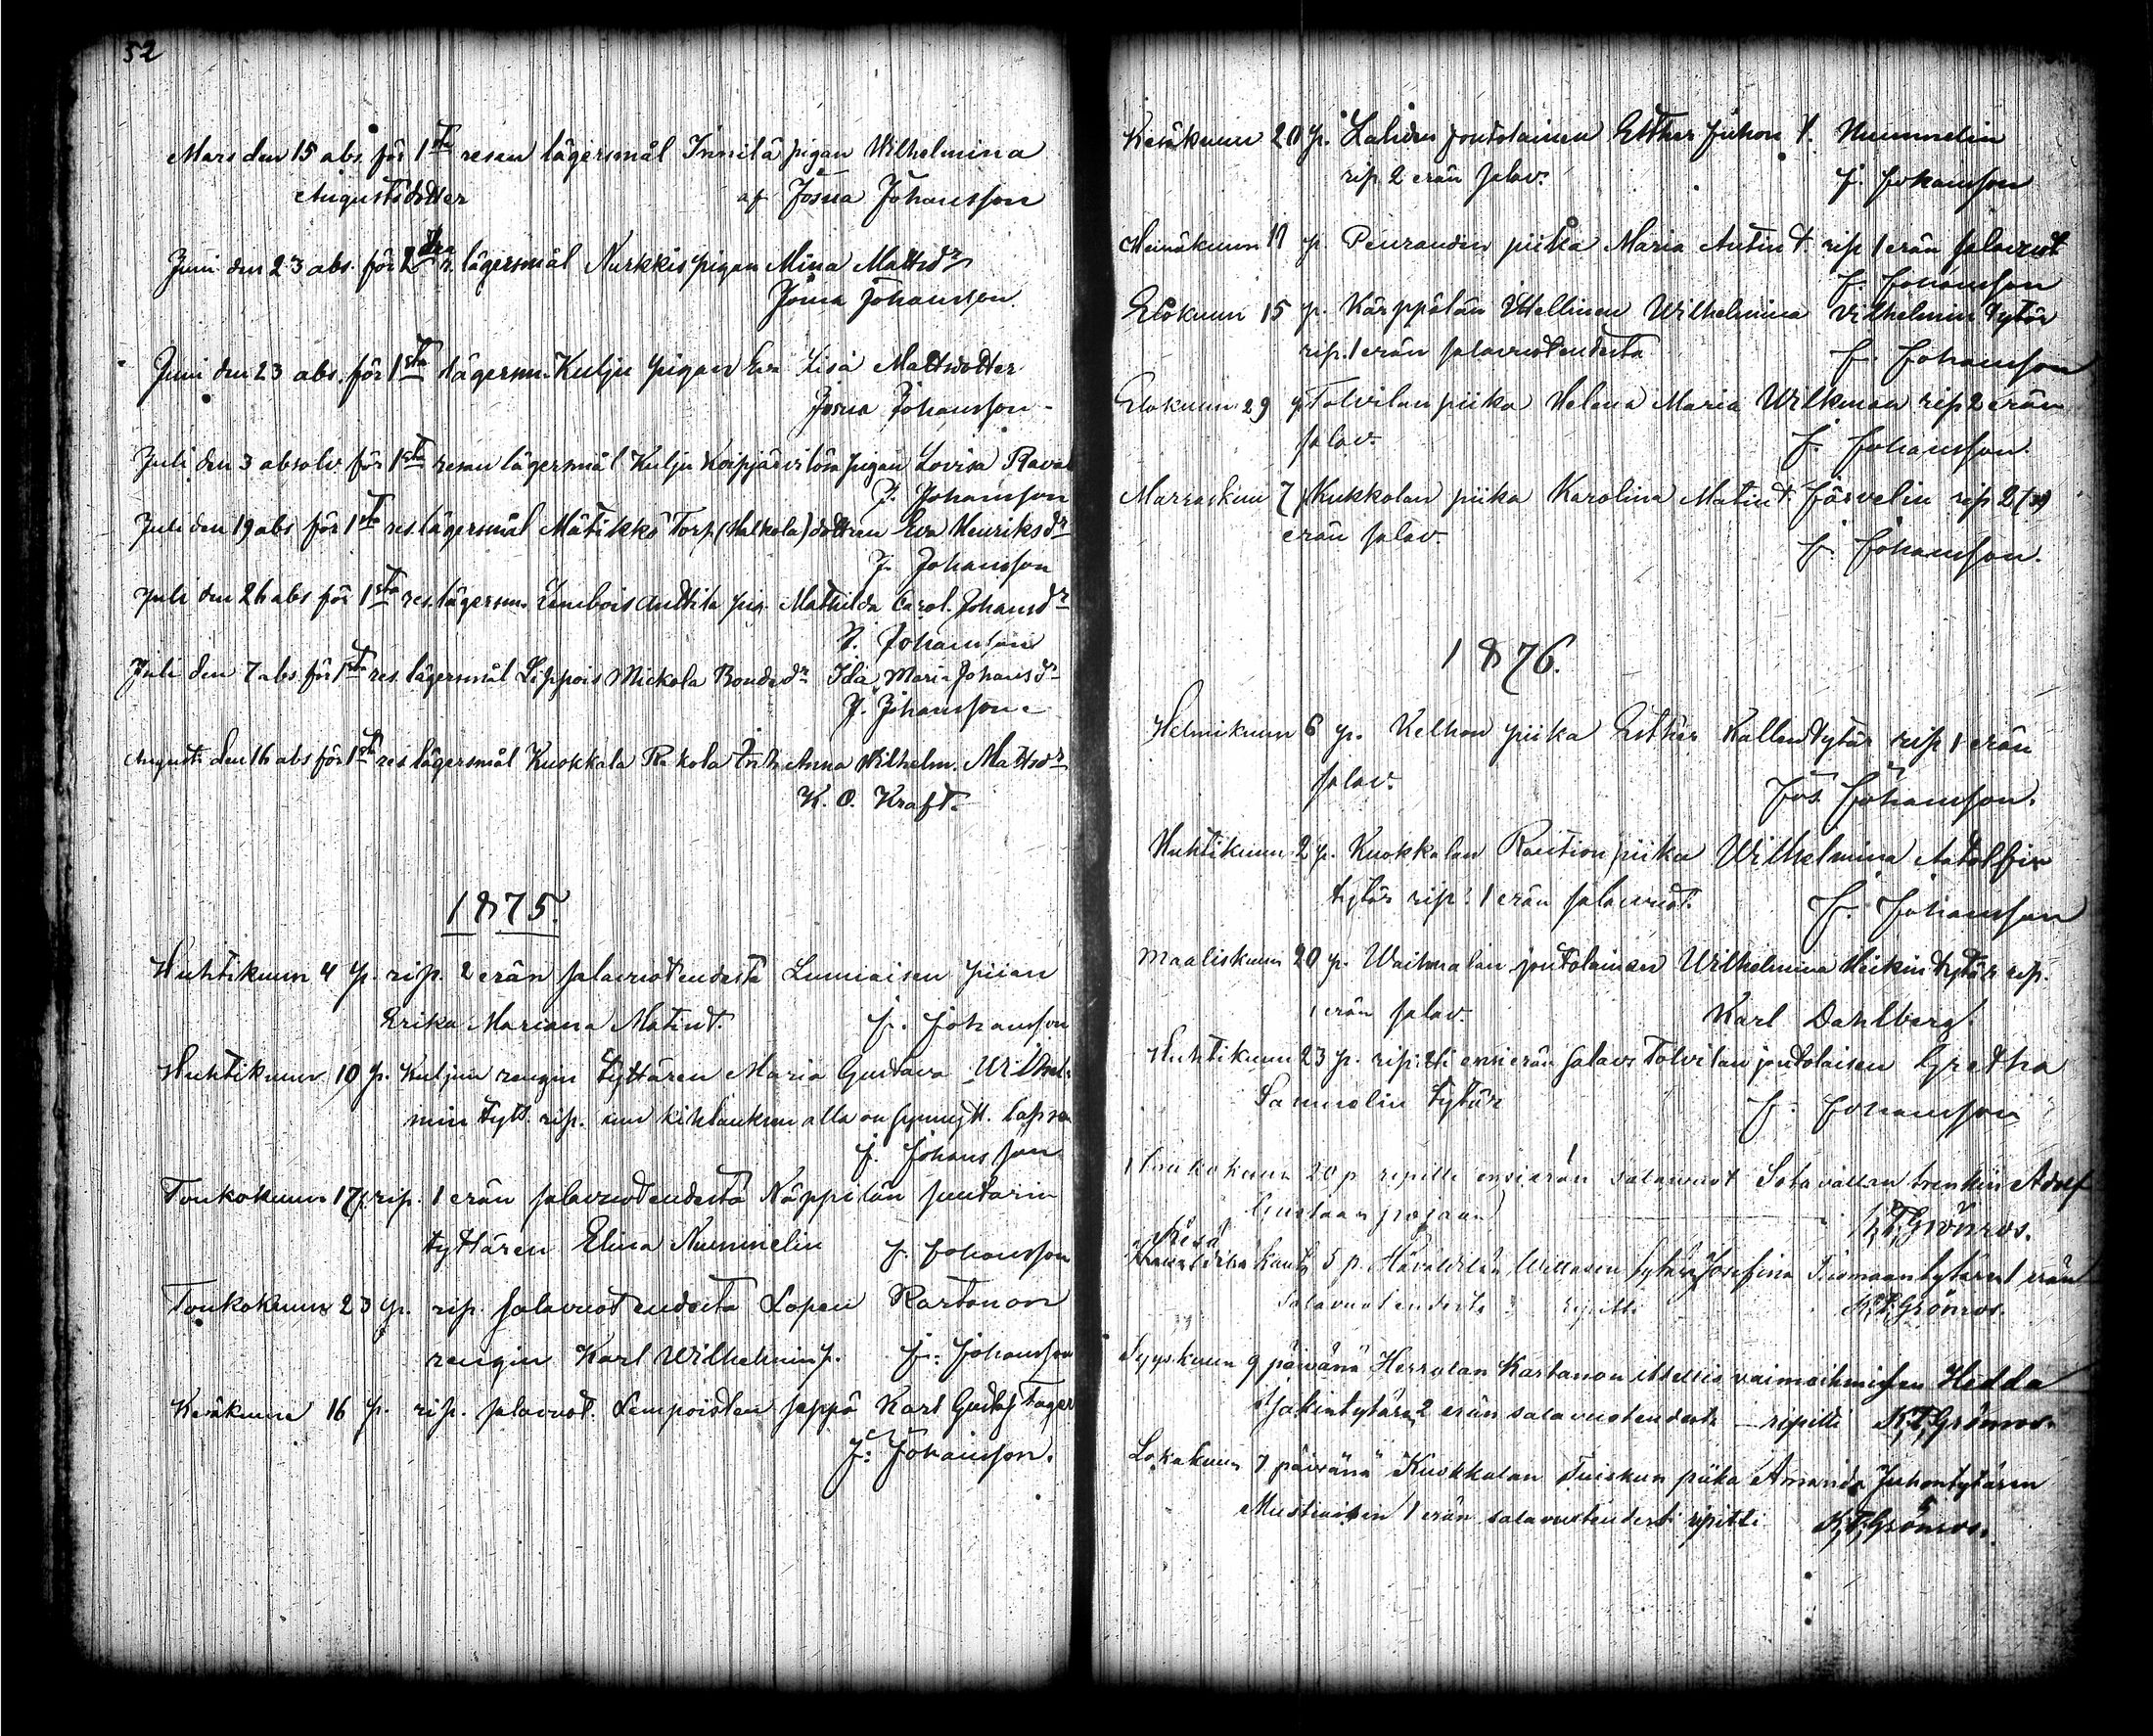 52
Mars den 15 abs. för 1sta resan lägersmål Innilä pigan Wilhelmina
Augustsdotter af Josua Johansson
Juni den 23 abs. för 2dra r. lägersmål Nurkkis pigan Mina Mattsdr
Josua Johansson.
Juni den 23 abs. för 1sta lägersm. Kulju pigan Eva Lisa Mattsdotter
Josua Johansson
Juli den 3 absolv. för 1sta resan lägersmål Kulju Koipijärvi lösa pigan Lovisa
J. Johansson
Juli den 19 abs för 1sta res. lägersmål Mätikkö Torp (Halkola) dottren Eva Henriksdr
J. Johansson
Juli den 26 abs. för 1sta res. lägersm. Lembois Anttila pig. Mathilda Carol. Johansdr
J. Johansson
Juli den 7 abs. för 1sta res. lägersmål Lippois Mickola Bondedr Ida Maria Johansdr
J. Johansson
Augusti den 16 abs för 1sta res lägersmål Kuokkala Anna Wilhelm. Mattsdr
K. O. Kraft.
1875.
Huhtikuun 4 p. rip. 2 erän salavuoteudesta Lumiaisen piian
Erika Mariana Matint. J. Johansson
Huhtikuun 10 p. Kuljun rengin tyttären Maria Gustava Wilhel-
min tytt. rip. kihlauksen alla on synnytt. lapsen
J. Johansson
Toukokuun 17 p. rip. 1 erän salavuoteudesta Näppilän suutarin
tyttären Elina Nummelin J. Johansson
Toukokuun 23 p. rip. salavuoteudesta Lopen Kartanon
rengin Karl Wilhelmin p. J. Johansson
Kesäkuun 16 p. rip. salavuot. Lempoisten seppä Karl Gustaf Fager
J. Johansson.
Kesäkuun 20 p. Lahden joutolainen Esther Juhon t. Nummelin
rip. 2 erän salav. J. Johansson
Heinäkuun 11 p. Penrandin piika Maria Antin t. rip 1 erän salavuot
J. Johansson
Elokuun 15 p. Kärppälän Ittellinen Wilhelmina Vilhelmin tytär
rip. 1 erän salavuoteudesta J. Johansson
Elokuun 29 p Tolvilan piika Helena Maria Wilkman rip 2 erän
salav. J. Johansson.
Marraskuu 7 p Kukkolan piika Karolina Matin t. Järvelin rip 2
erän salav. J. Johansson.
1876.
Helmikuun 6 p. Kelhon piika Esther Kallentytär rip 1 erän
salav. Jos. Johansson.
Huhtikuun 2 p. Kuokkalan Raition piika Wilhelmina Adolfin
tytär rip. 1 erän salavuot. J. Johansson
Maaliskuun 20 p. Waihmalan joutolainen Wilhelmina Heikin tytär rip.
1 erän salav. Karl Dahlberg.
Huhtikuun 23 p. ripitti ensi erän salav. Tolvilan joutolaisen Gretha
Samuelin tytär J. Johansson
Toukokuun 20 p ripitti ensierän salavuot Sotavallan trenkiä Adolf
Gustaan pojaan K, T, Grönros.
Kesä
kuuta 5 p. Josefina Tuomaantytären 1 erän
salavuoteudesta ripitti K, T, Grönros.
Syyskuun 9 päivänä Herralan Kartanon ittellis vaimoihmisen Hedda
2 erän salavuoteudesta ripitti K, T, Grönros.
Lokakuun 7 päivänä Kuokkalan Tuiskun piika Amanda Juhontytären
Mustiaisen 1 erän salavuoteudesta ripitti K, T, Grönros.